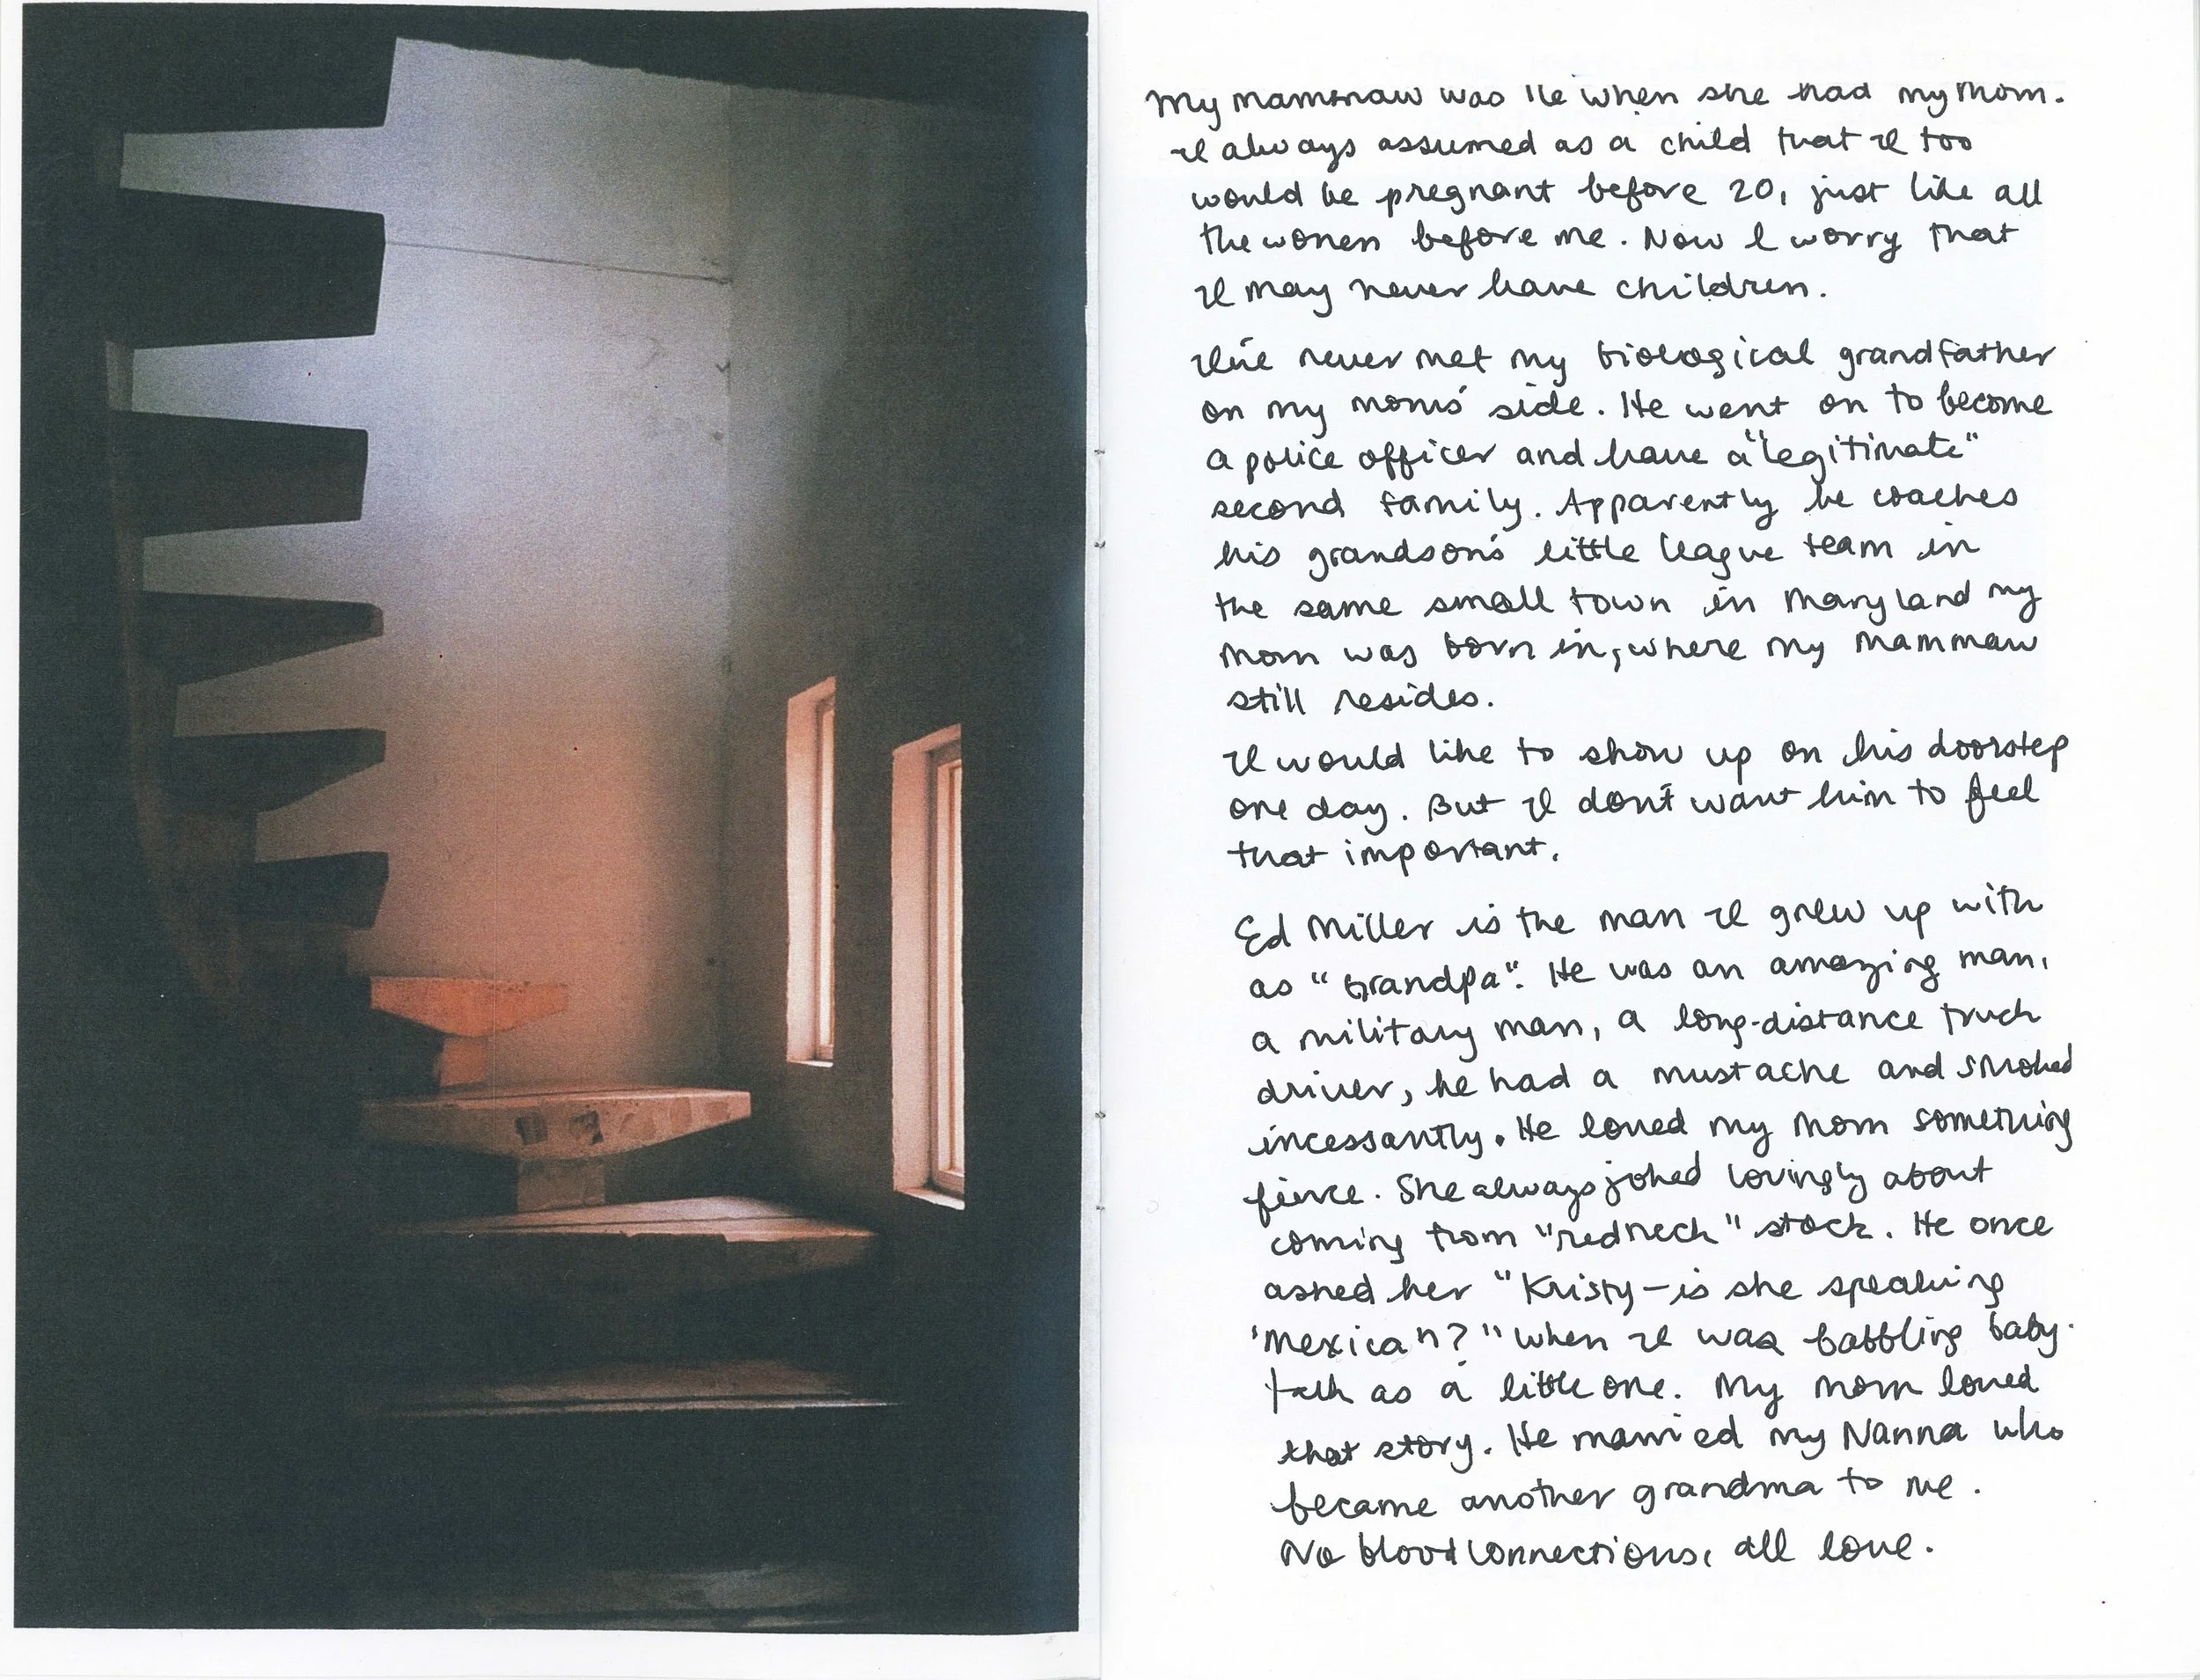 My mammaw was 16 when she had my mom.
I always assumed as a child that I too
would be pregnant before 20, just like all
the women before me. Now I worry that
I may never have children.
I've never met my biological grandfather
on my mom's side. He went on to become
a police officer and have a "legitimate"
second family. Apparently he coaches
his grandson's little league team in
the same small town in Maryland my
mom was born in, where my mammaw
still resides.
I would like to show up on his doorstep
one day. But I don't want him to feel
that important.
Ed Miller is the man I grew up with
as "Grandpa". He was an amazing man,
a military man, a long-distance truck
driver, he had a mustache and smoked
incessantly. He loved my mom something
fierce. She always joked lovingly about
coming from "redneck" stock. He once
asked her "Kristy – is she speaking
'Mexican?" when I was babbling baby-
talk as a little one. My mom loved
that story. He married my Nanna who
became another grandma to me.
No blood connections, all love.